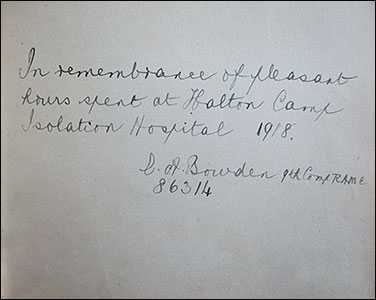 In remembrance of pleasant
hours spent at Halton Camp
Isolation Hospital 1918.
C. A. Bowden 9th Comp RAMC
86314